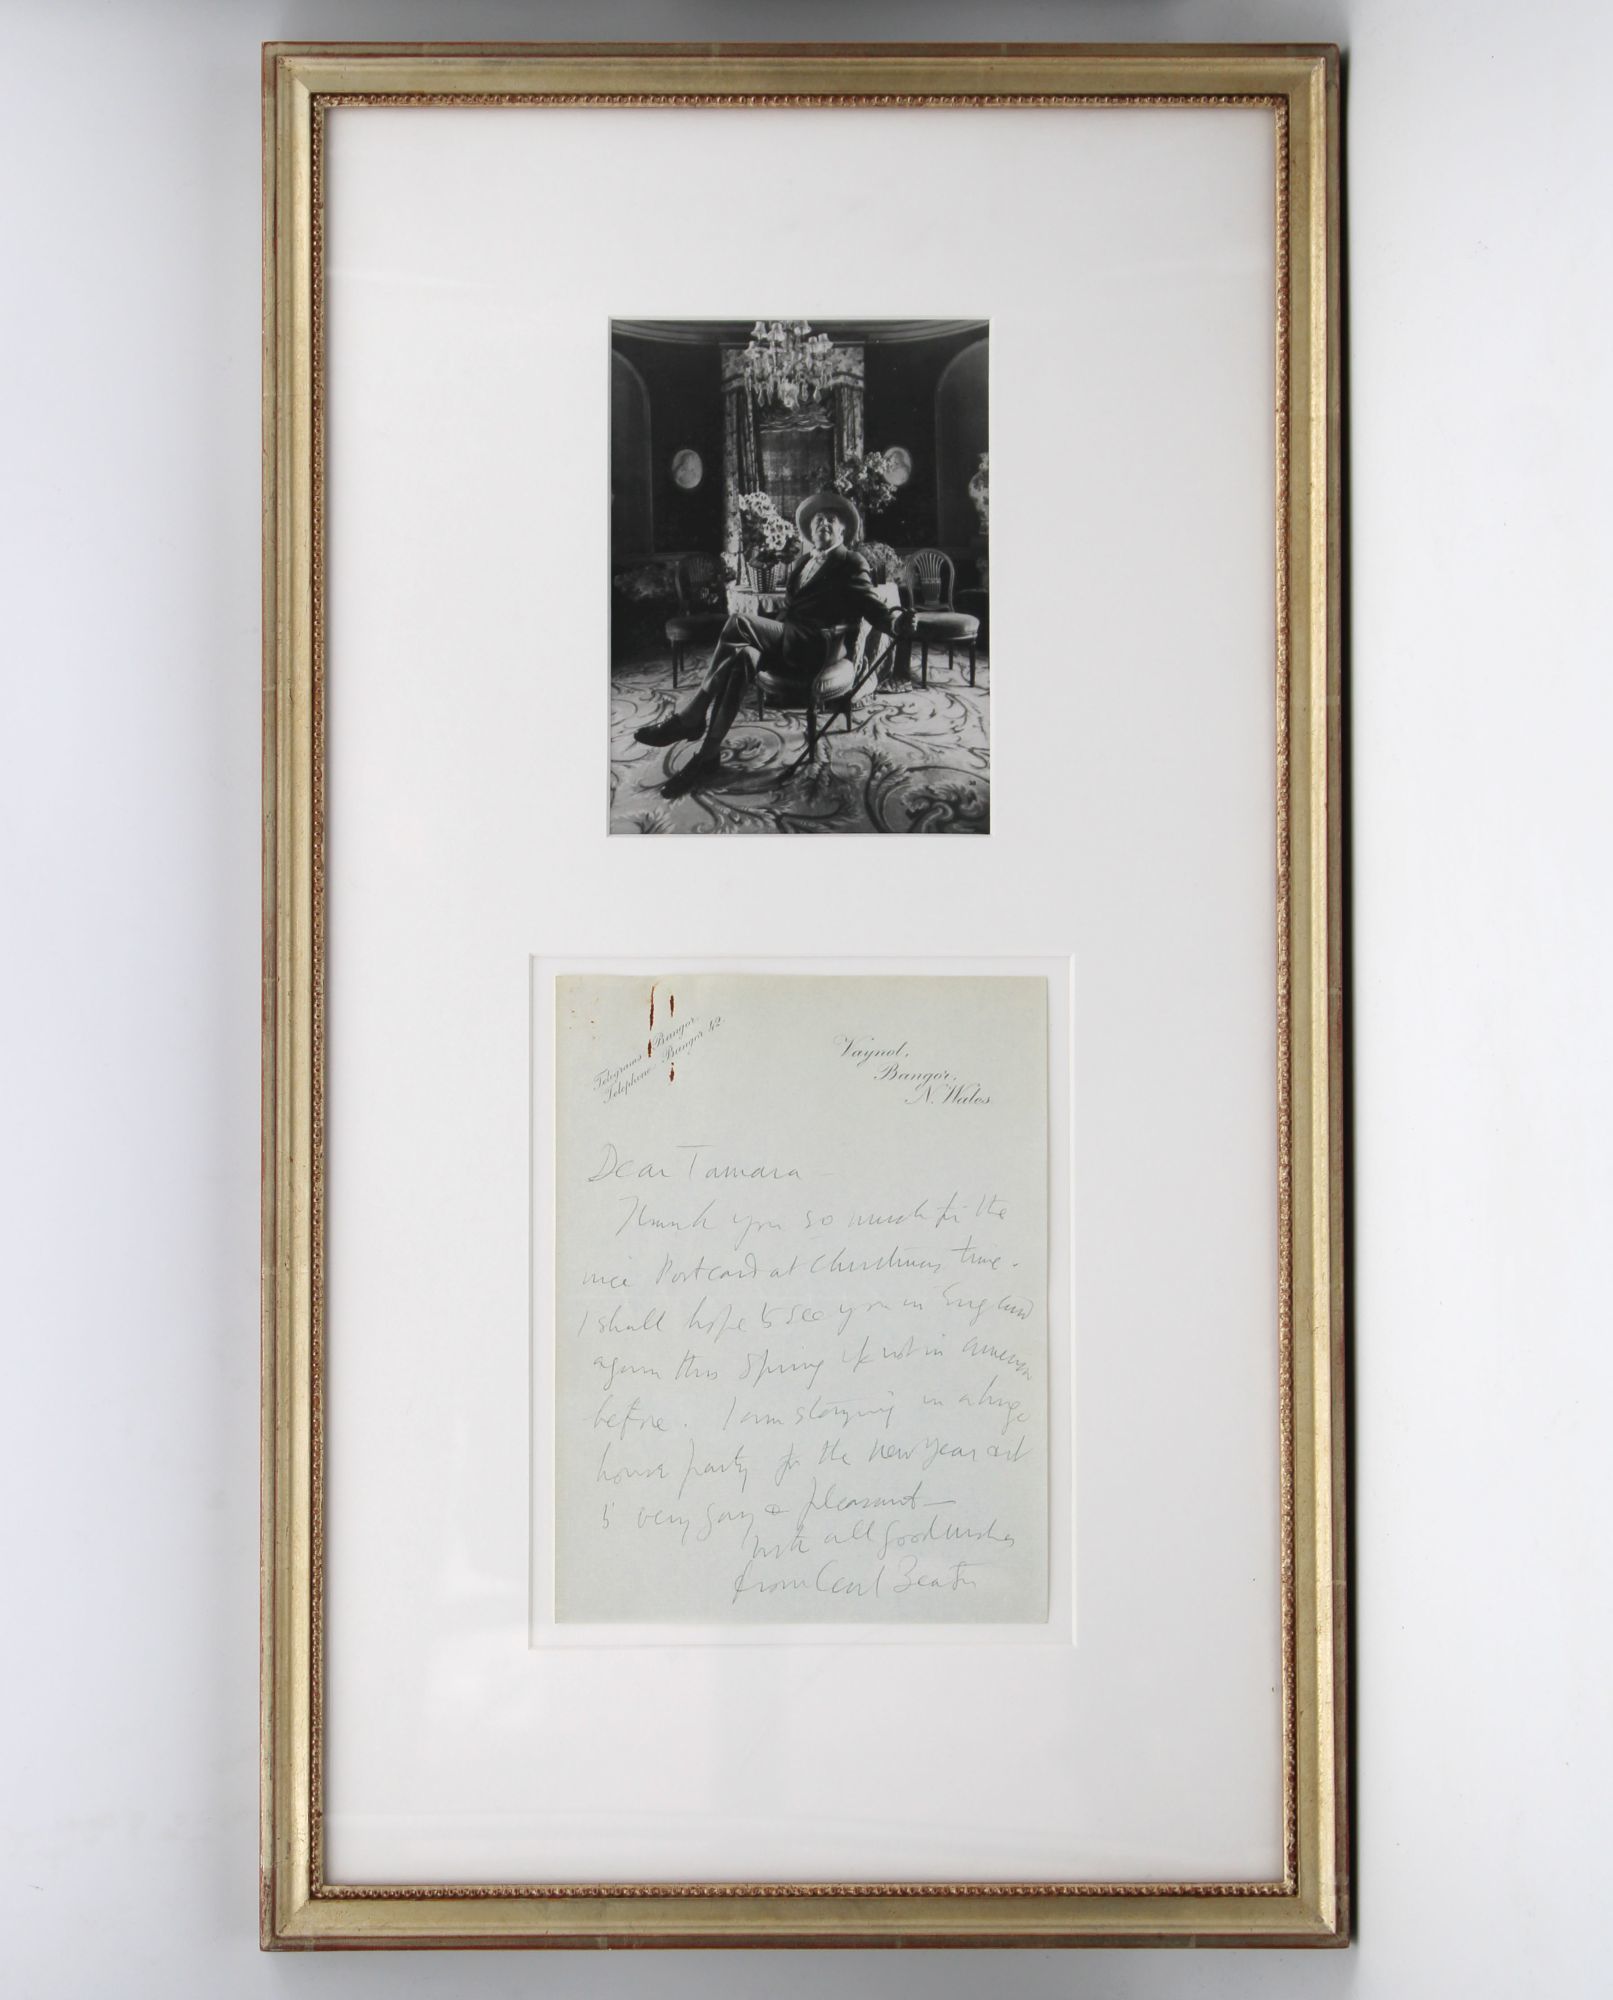 Telegrams. Bangor.
Telephone. Bangor 42.
Vaynol,
Bangor,
N. Wales
Dear Tamara –
Thank you so much for the
nice Postcard at Christmas time.
I shall hope to see you in England
again this Spring if not in America
before. I am staying in a huge
house party for the new year
is very gay & pleasant –
with all good wishes
from Cecil Beaton